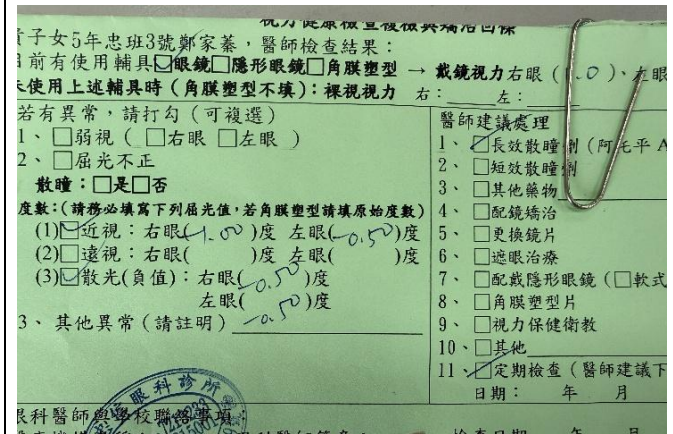 視力健康檢查複檢與矯治回條
貴子女5年忠班3號鄭家蓁，醫師檢查結果：
目前有使用輔具☑眼鏡□隱形眼鏡□角膜塑型 → 戴鏡視力右眼（1.0）、左眼
未使用上述輔具時（角膜塑型不填）：裸視視力 右：____ 左：____
若有異常，請打勾（可複選）
1、□弱視（□右眼 □左眼 ）
2、□屈光不正
散瞳：□是□否
度數：（請務必填寫下列屈光值，若角膜塑型請填原始度數）
(1)☑近視：右眼(-1.00)度 左眼(-0.50)度
(2)□遠視：右眼( )度 左眼( )度
(3)☑散光(負值)：右眼(-0.50)度
左眼(-0.50)度
3、其他異常（請註明）
醫師建議處理
1、☑長效散瞳劑（阿托平 A
2、□短效散瞳劑
3、□其他藥物
4、□配鏡矯治
5、□更換鏡片
6、□遮眼治療
7、□配戴隱形眼鏡（□軟式
8、□角膜塑型片
9、□視力保健衛教
10、□其他
11、☑定期檢查（醫師建議下
日期： 年 月
眼科診所
眼科醫師與學校聯絡事項